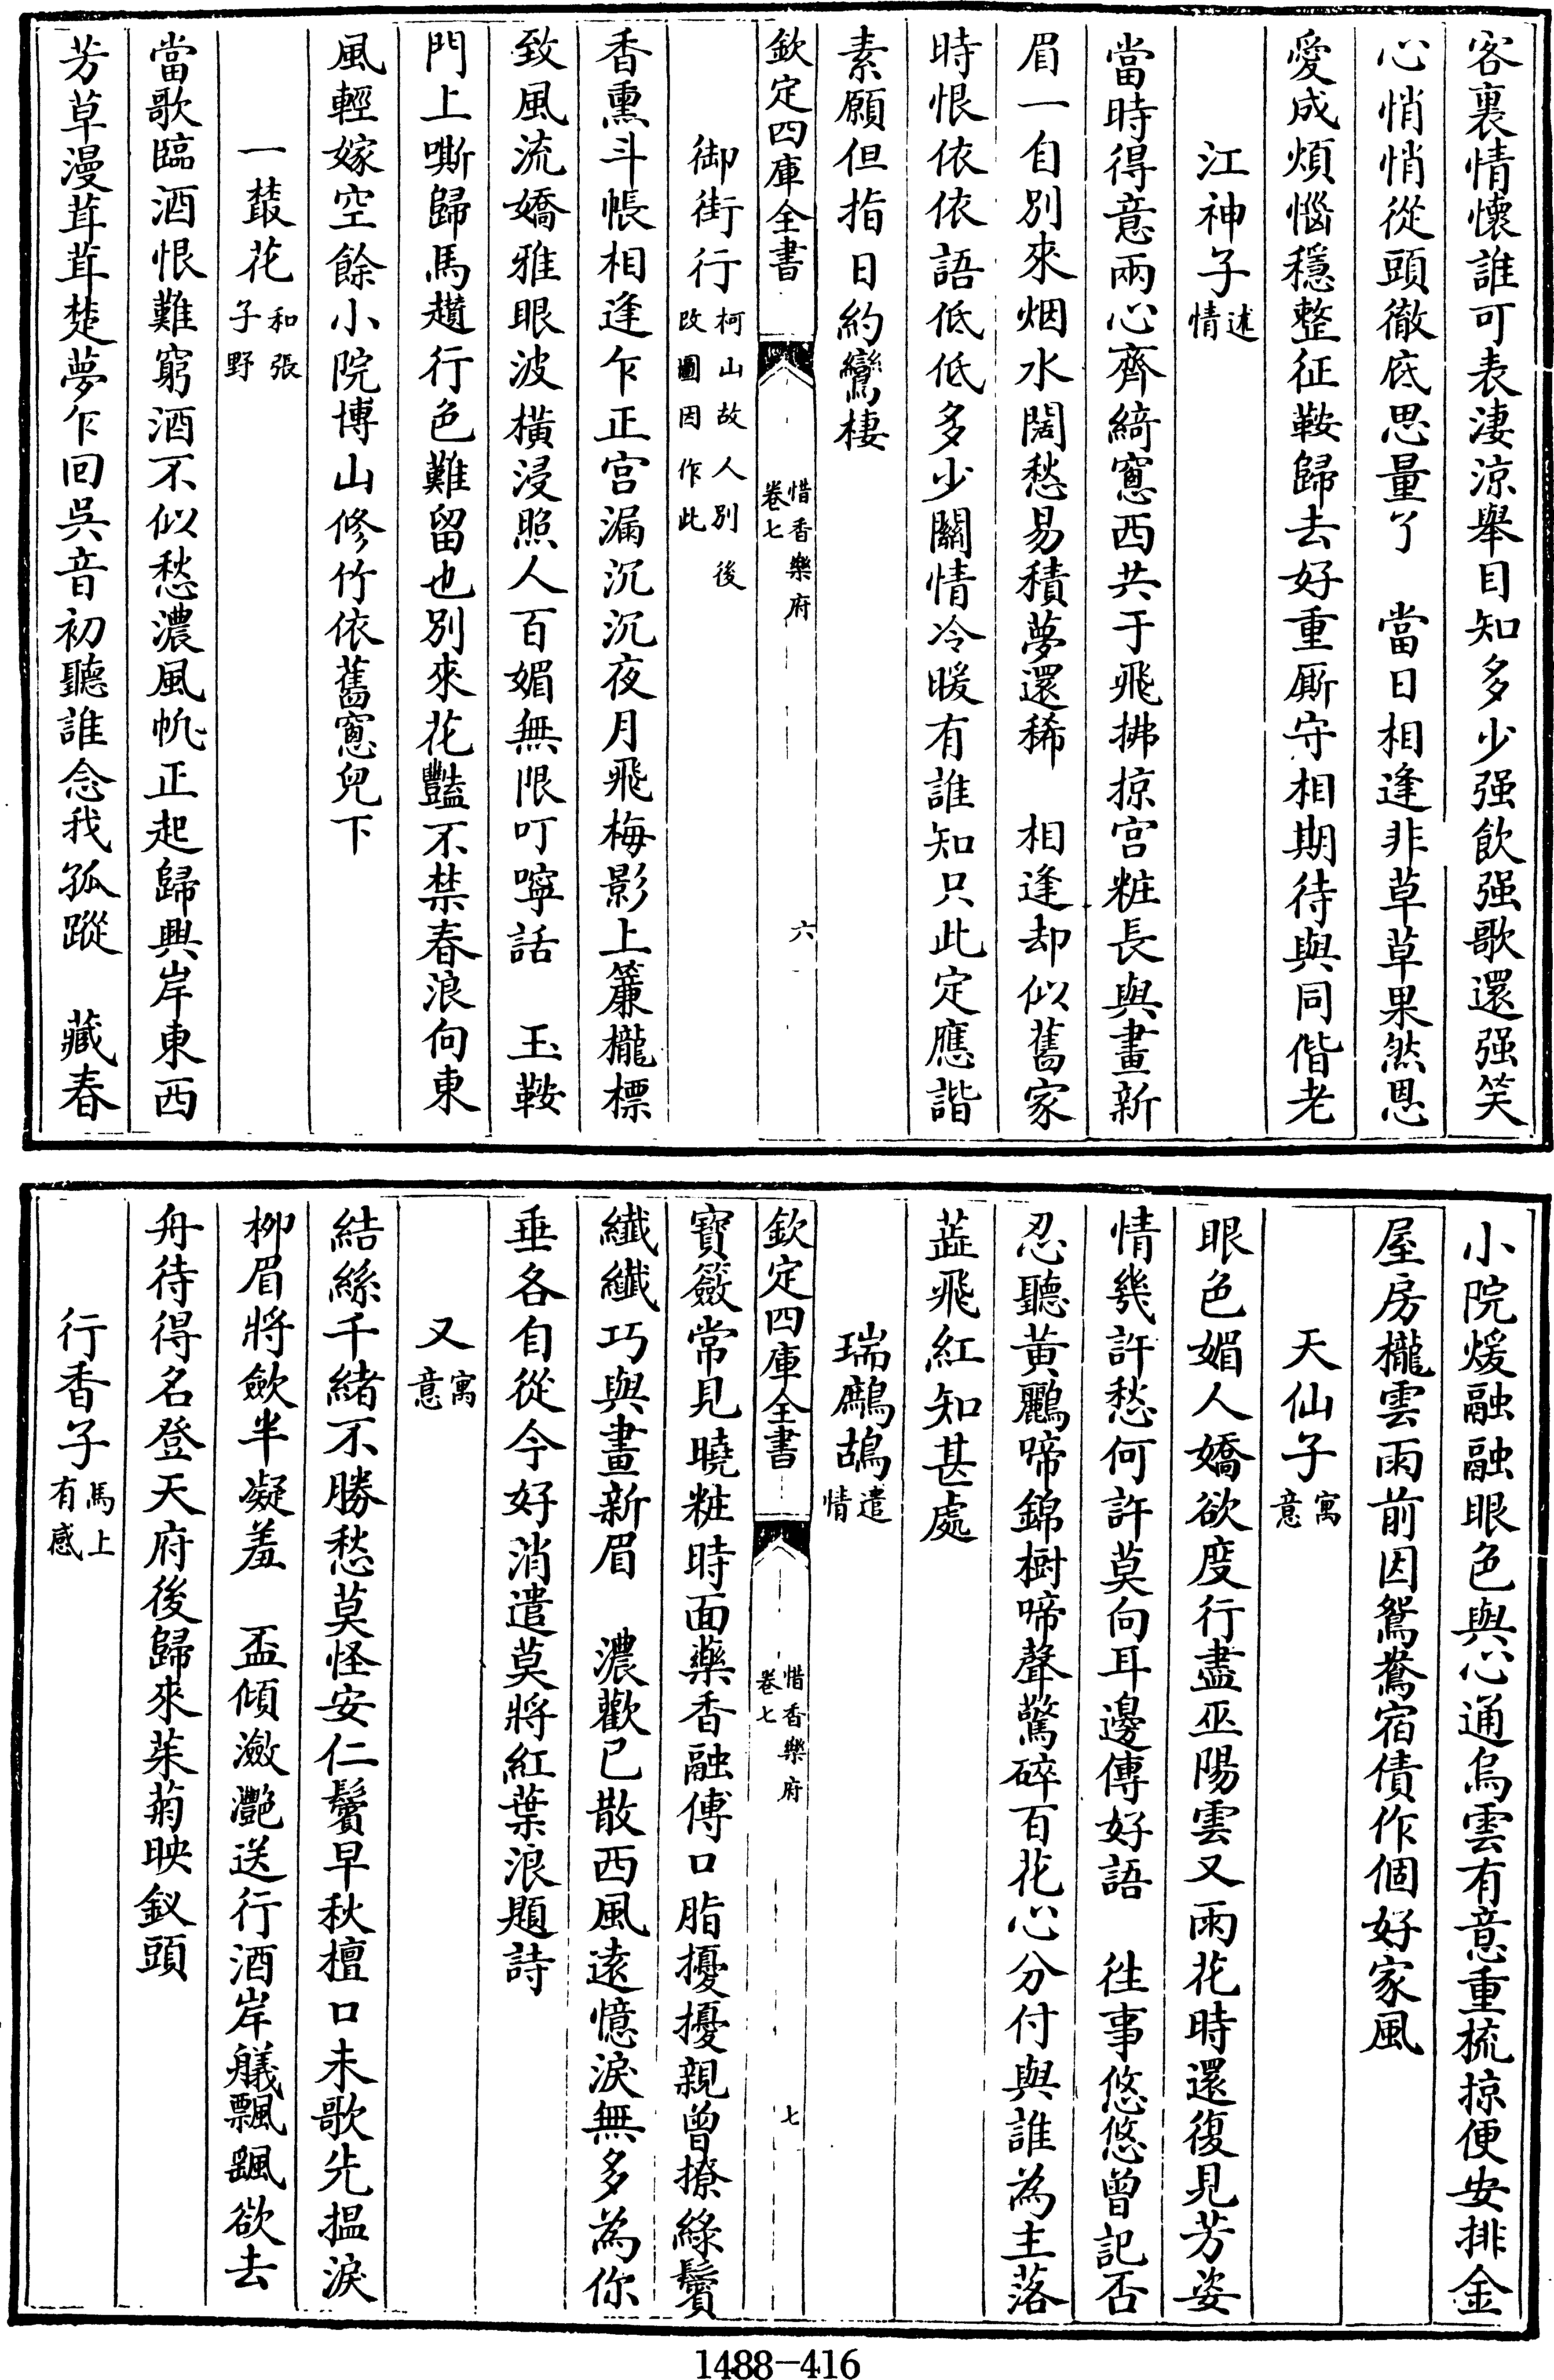 客裏情懷誰可表淒涼舉目知多少强飲强歌還强笑
心悄悄從頭徹底思量了　當日相逢非草草果然恩
愛成煩惱穩整征鞍歸去好重厮守相期待與同偕老
江神子述情
當時得意兩心齊綺窻西共于飛拂掠宫粧長與畫新
眉一自別來烟水闊愁易積夢還稀　相逢却似舊家
時恨依依語低低多少關情冷暖有誰知只此定應諧
素願但指日約鸞棲
欽定四庫全書　惜香樂府卷七　六
御街行柯山故人別後改圖因作此
香熏斗帳相逢乍正宫漏沉沉夜月飛梅影上簾櫳標
致風流嬌雅眼波橫浸照人百媚無限叮嚀話　玉鞍
門上嘶歸馬趲行色難留也別來花豔不禁春浪向東
風輕嫁空餘小院博山修竹依舊窻兒下
一叢花和張子野
當歌臨酒恨難窮酒不似愁濃風帆正起歸興岸東西
芳草漫茸茸楚夢乍回吳音初聽誰念我孤蹤　藏春
小院煖融融眼色與心通烏雲有意重梳掠便安排金
屋房櫳雲雨前因鴛鴦宿債作個好家風
天仙子寓意
眼色媚人嬌欲度行盡巫陽雲又雨花時還復見芳姿
情幾許愁何許莫向耳邊傳好語　徃事悠悠曾記否
忍聽黃鸝啼錦樹啼聲驚碎百花心分付與誰為主落
蕋飛紅知甚處
瑞鷓鴣遣情
欽定四庫全書　惜香樂府卷七　七
寶籢常見曉粧時面藥香融傅口脂擾擾親曾撩綠鬢
纖纖巧與畫新眉　濃歡已散西風遠憶淚無多為你
垂各自從今好消遣莫將紅葉浪題詩
又寓意
結絲千緒不勝愁莫怪安仁鬢早秋檀口未歌先揾淚
柳眉將歛半凝羞　盃傾瀲灧送行酒岸艤飄颻欲去
舟待得名登天府後歸來茱菊映釵頭
行香子馬上有感
1488-416